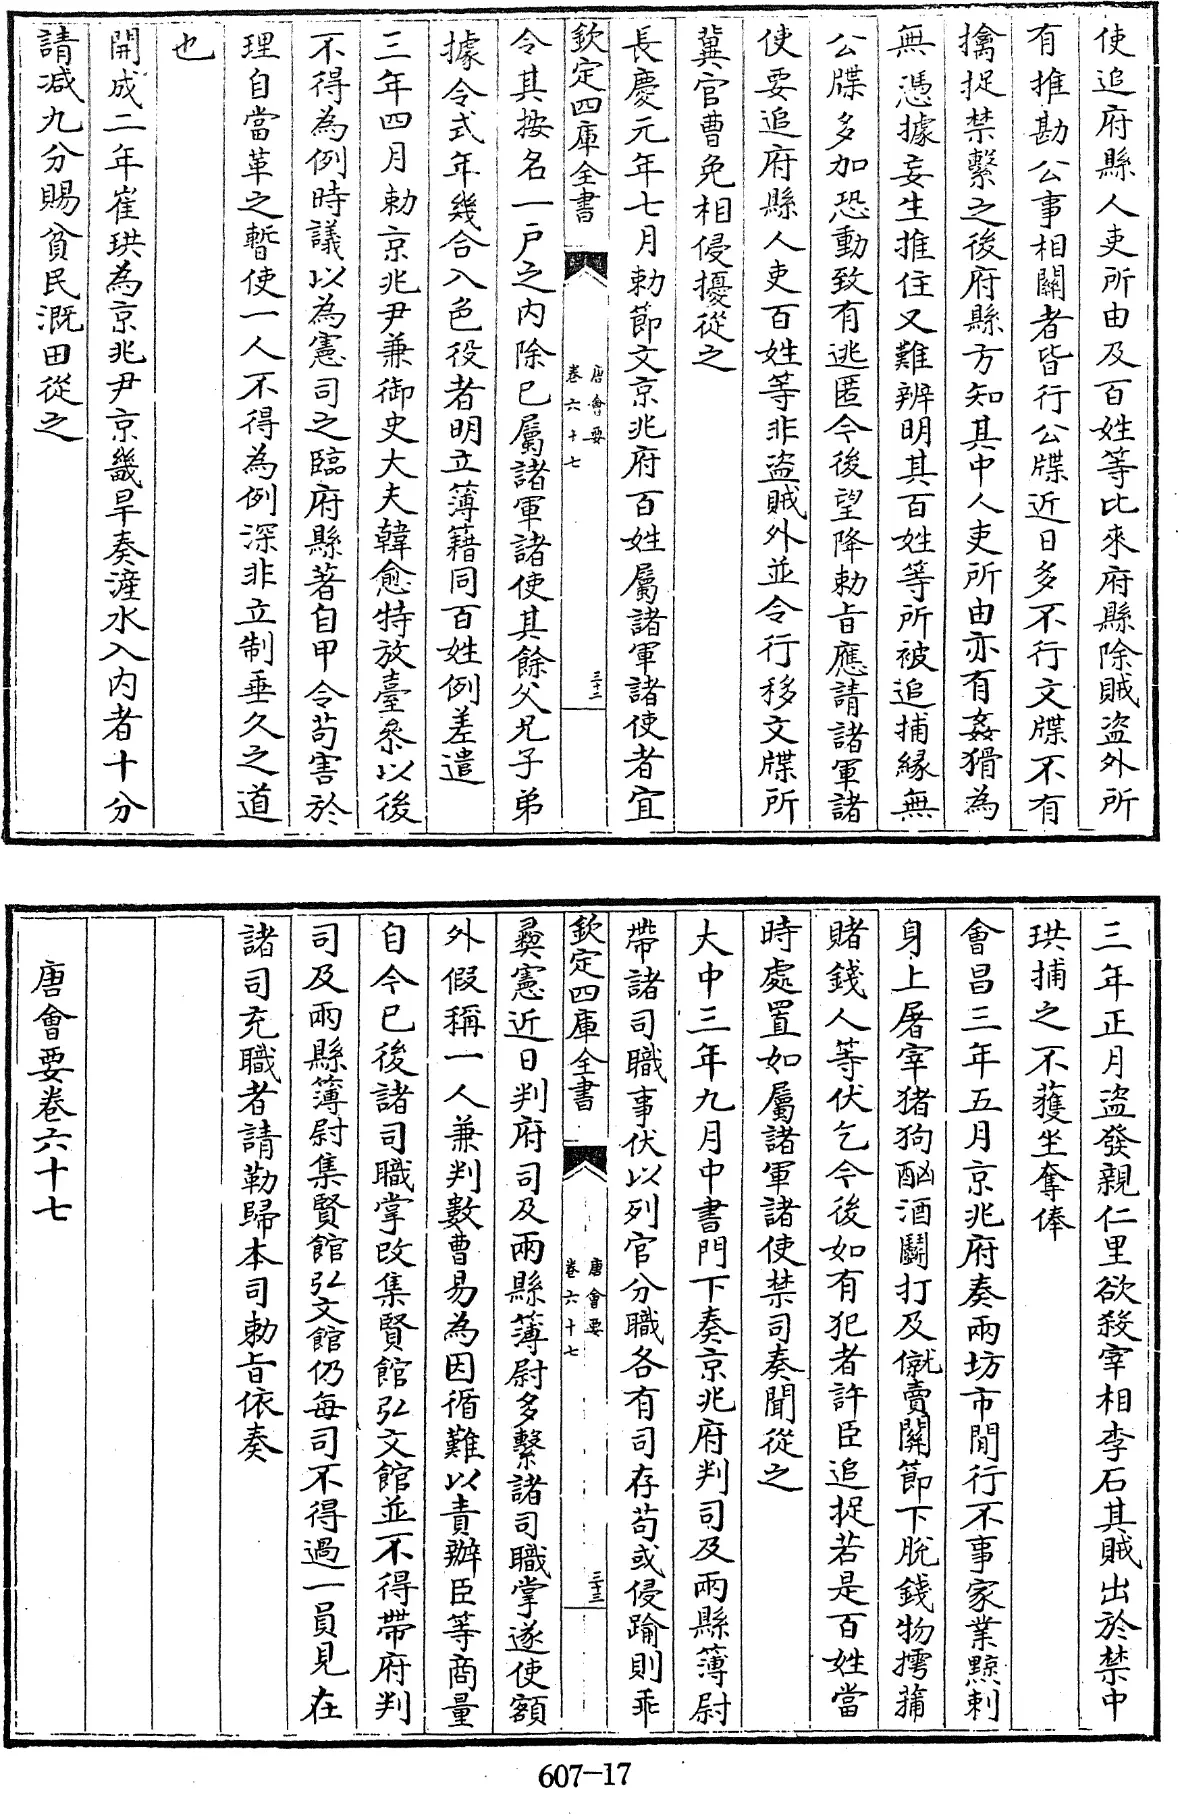 使追府縣人吏所由及百姓等比來府縣除賊盜外所
有推勘公事相關者皆行公牒近日多不行文牒不有
擒捉禁繫之後府縣方知其中人吏所由亦有姦猾為
無憑據妄生推住又難辨明其百姓等所被追捕縁無
公牒多加恐動致有逃匿今後望降勅旨應請諸軍諸
使要追府縣人吏百姓等非盜賊外並令行移文牒所
冀官曹免相侵擾從之
長慶元年七月勅節文京兆府百姓屬諸軍諸使者宜
欽定四庫全書
唐會要
卷六十七
三十二
令其按名一戶之内除已屬諸軍諸使其餘父兄子弟
據令式年幾合入色役者明立簿籍同百姓例差遣
三年四月勅京兆尹兼御史大夫韓愈特放臺參以後
不得為例時議以為憲司之臨府縣著自甲令苟害於
理自當革之暫使一人不得為例深非立制垂久之道
也
開成二年崔珙為京兆尹京畿旱奏滻水入内者十分
請減九分賜貧民溉田從之
三年正月盜發親仁里欲殺宰相李石其賊出於禁中
珙捕之不獲坐奪俸
會昌三年五月京兆府奏兩坊市閒行不事家業黥刺
身上屠宰猪狗酗酒鬭打及僦賣關節下脫錢物摴蒱
賭錢人等伏乞今後如有犯者許臣追捉若是百姓當
時處置如屬諸軍諸使禁司奏聞從之
大中三年九月中書門下奏京兆府判司及兩縣簿尉
帶諸司職事伏以列官分職各有司存苟或侵踰則乖
欽定四庫全書
唐會要
卷六十七
三十三
彞憲近日判府司及兩縣薄尉多繫諸司職掌遂使額
外假稱一人兼判數曹易為因循難以責辦臣等商量
自今已後諸司職掌改集賢館弘文館並不得帶府判
司及兩縣簿尉集賢館弘文館仍每司不得過一員見在
諸司充職者請勒歸本司勅旨依奏
唐會要卷六十七
607-17